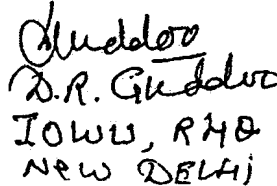 Guddoo
D.R. Guddoo
IOWW, RHQ
NEW DELHI